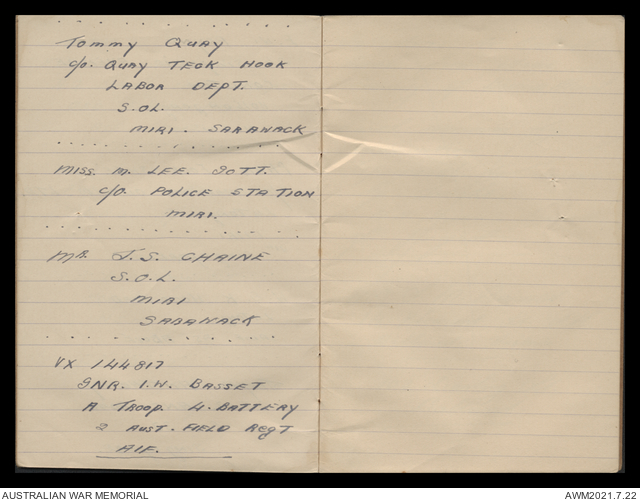 Tommy Quay
c/o. Quay Teck Hook
Labor Dept.
S.O.L.
Miri. Sarawack
Miss. M. Lee. Gott.
c/o. Police Station
Miri.
Mr. J. S. Chaine
S.O.L.
Miri
Sarawack
VX 144817
Gnr. I.W. Basset
A Troop. 4. Battery
2 Aust. Field Regt
AIF.
AUSTRALIAN WAR MEMORIAL
AWM2021.7.22